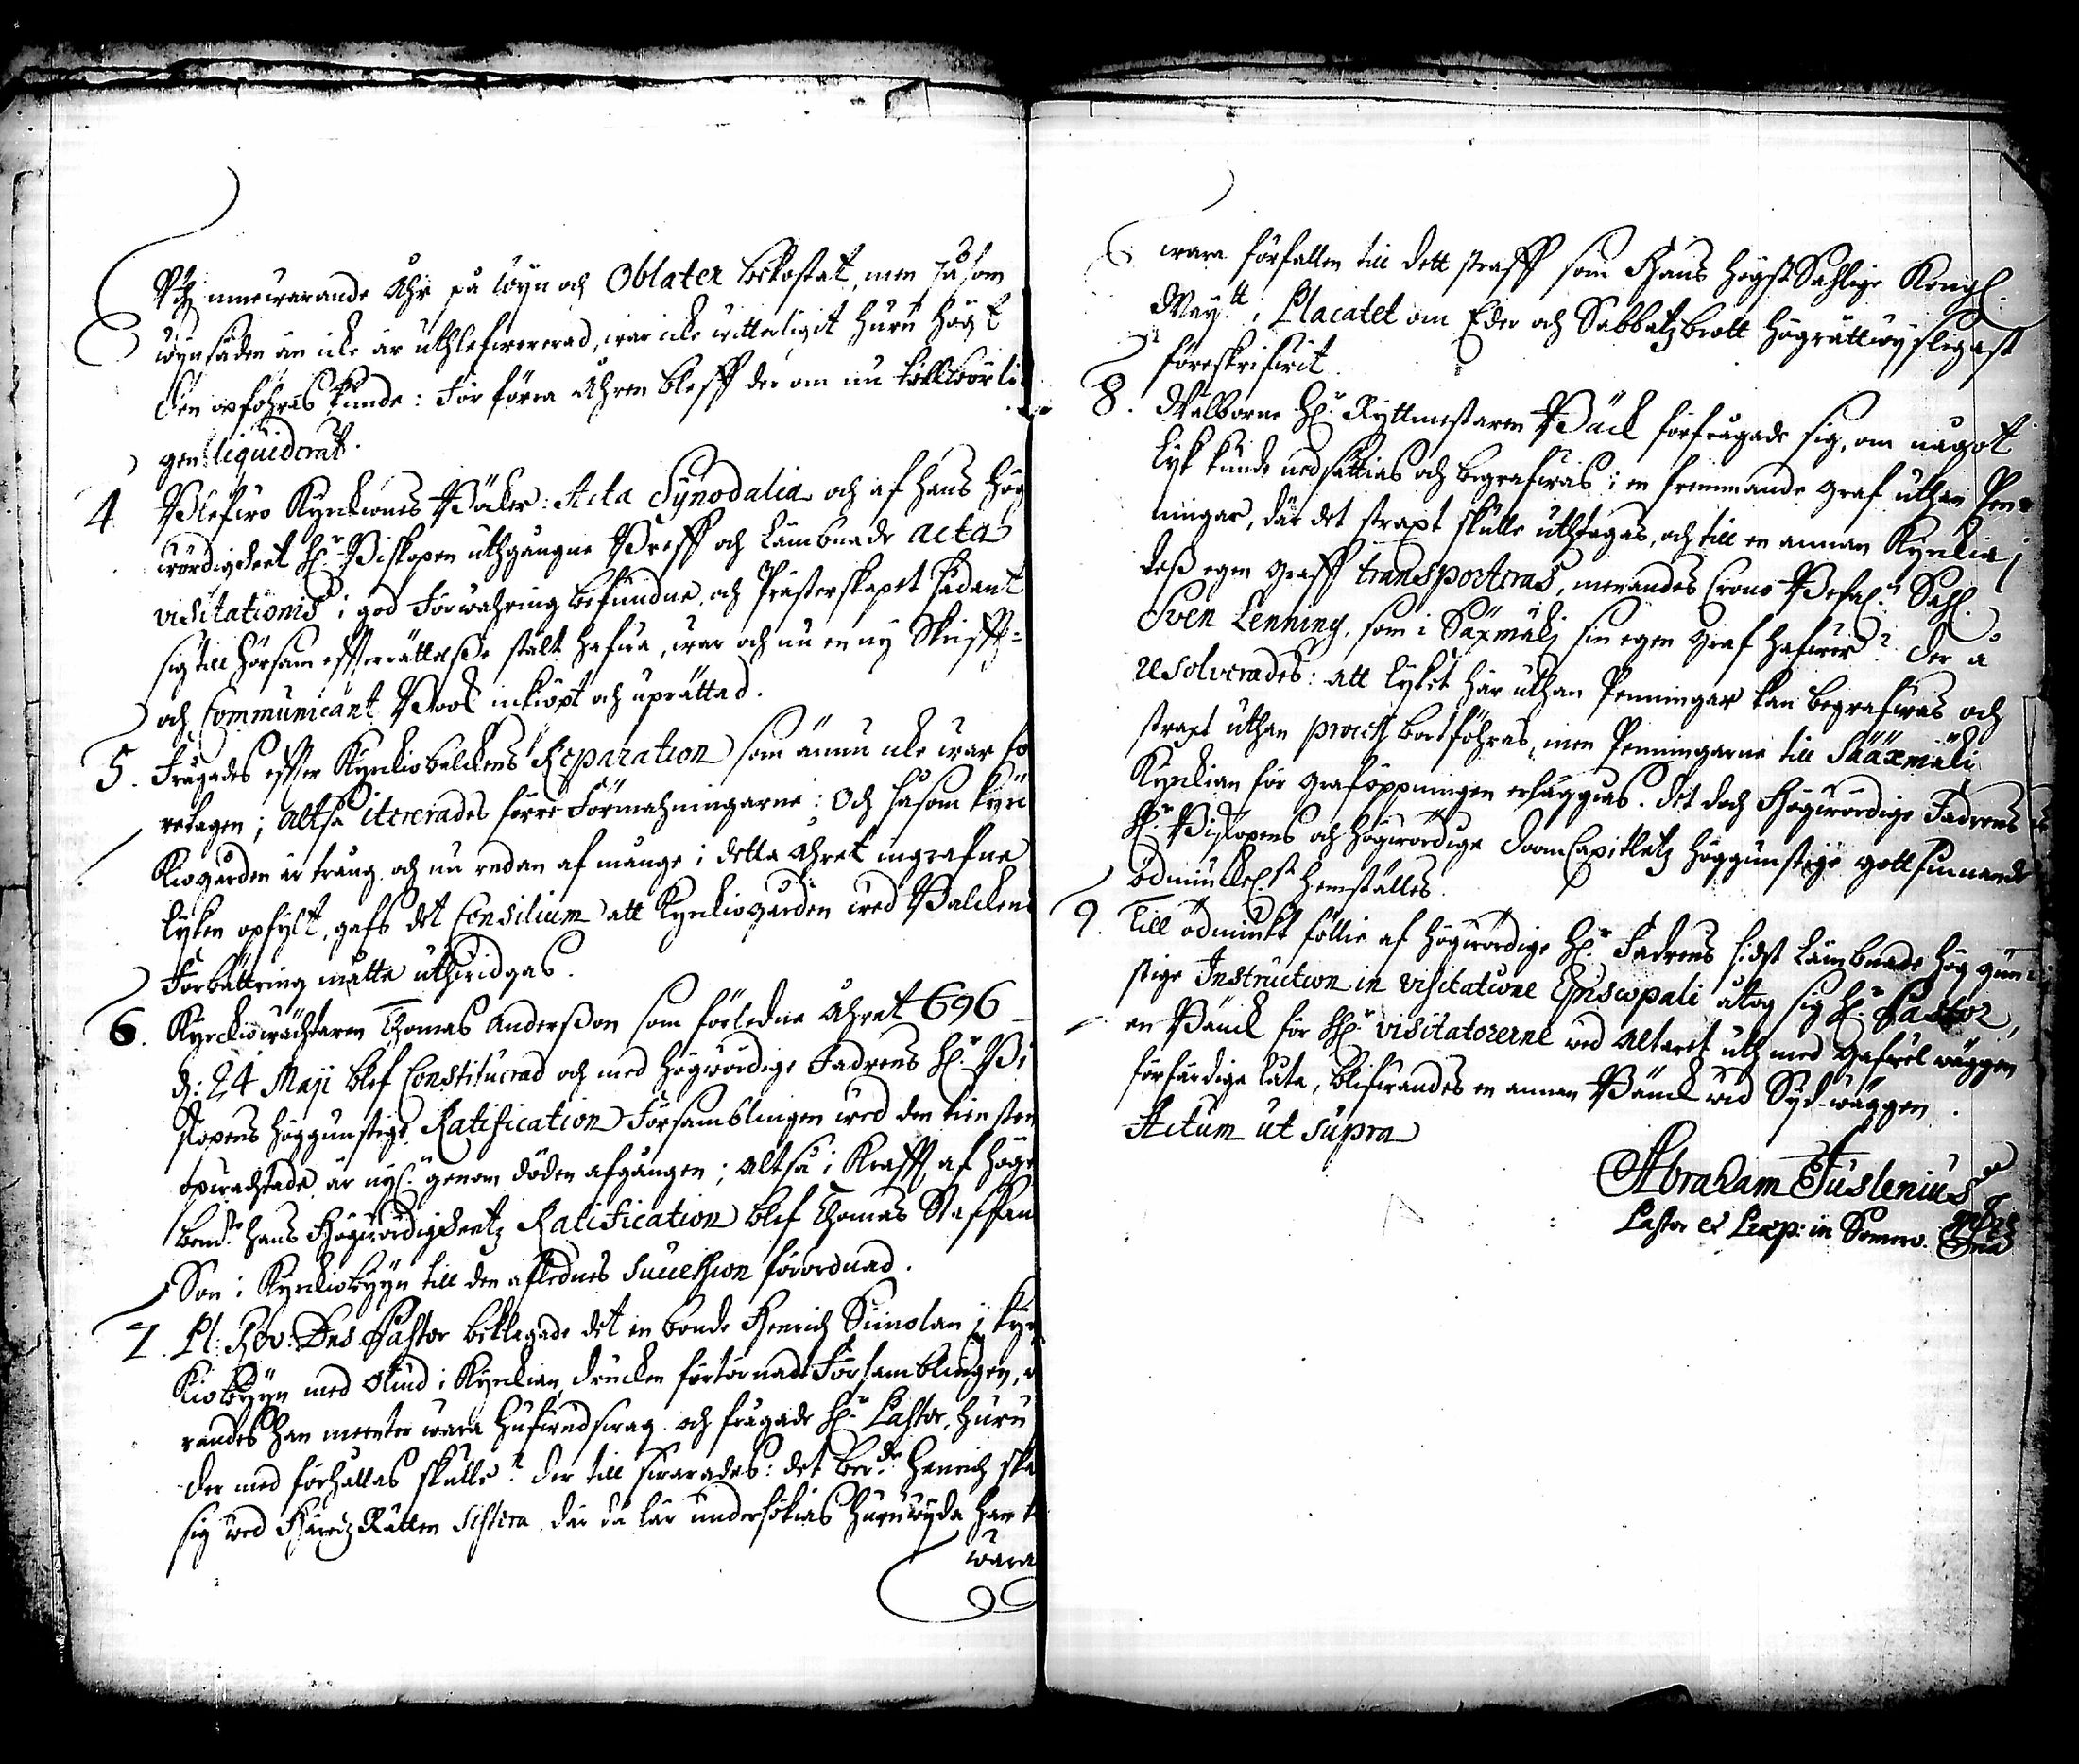 och innewarande Åhr på wyn och Oblater bekostat, men såsom
wynsäden än icke är uthlefwererad, war icke witterligit huru högt
den opföhras kunde: För förra Åhren bleff der om nu tillbörli-
gen liquiderat.
4. Blefwo Kyrckiones Böker: Acta Synodalia och af hans Hög
wördigheet H:r Biskopen uthgångne Breff och Lämbnade acta
visitationis i god förwahring befundne, och Prästerskapet sådant
sig till hörsam effterrättelsse stält hafwa, war och nu en ny Skrifft=
och Communicant Book inkiöpt och uprättad.
5. Frågades effter Kyrckiobalckens Reparation som ännu icke war fö
retagen; altså itererades förre Förmahningarne: Och såsom kyrc
kiogården är trång och nu redan af månge i detta Åhret ingrafne
Lyken opfylt, gafs det Consilium att Kyrckiogården wed Balckens
Förbättring måtte uthwidgas.
6. Kyrckiowächtaren Thomas Andersson som förledne Åhret 696
d: 24 Maji blef Constituerad och med Högwördige Fadrens H:r Bi
skopens höggunstige Ratification Församblingen wed den tiensten
opwachtade, är nyl: genom döden afgången; altså i Krafft af högst
bem:te hans Högwördigheetz Ratification blef Thomas Staffan
Son i Kyrckiobyyn till den aflednes Succession förordnad.
7. Pl: Rev: Dns Pastor beklagade det en bonde Henrich Simolan i kyrc
kiobyyn med Oliud i Kyrckian, drucken förtörnade Församblingen,
randes han meente wara hufwudswag och frågade H:r Pastor, huru
der med förhållas skulle? der till swarades: det be:de Henrich ska
sig wed HäredzRätten sistera, där då lär undersökias huruwyda han
wara
wara förfallen till dett straff som Hans HögstSahlige Kongl.
May:tt i Placatet om Eder och Sabbatzbrott högrättwysligast
föreskrifwit.
8. Wälborne H:r Ryttmestaren Bäck förfrågade sig, om något
Lyk kunde nedsättias och begrafwas i en fremmande graf uthan Pen=
ningar, där det straxt skulle uthtagas, och till en annan Kyrckia i
dess egen graff transporteras, menandes Crono Befal: Sahl.
Sven Lenning, som i Säxmäki sin egen graf hafwer? der å
resolverades: att lyket här uthan Penningar kan begrafwas och
straxt uthan process bortföhras, men Penningarne till Sääxmäki
Kyrckian för graföppningen erläggias. Det doch Högwördige Fadrens
H:r Biskopens och högwördige DoomCapitletz höggunstige gottfinnande
ödmiuckel:st hemställes.
9. Till ödmiukt föllie af Högwördige H:r Fadrens sidst Lämbnade höggun=
stige Instruction in visitatione Episcopali åtog sig H:r Pastor,
en Bänck för H:r visitatorerne wed Altaret uth med Gafwel wäggen
förfärdiga låta, blifwandes en annan Bänck wid Syd-wäggen.
Actum ut supra
Abraham Tuslenius
Pastor et Præp: in Somero.